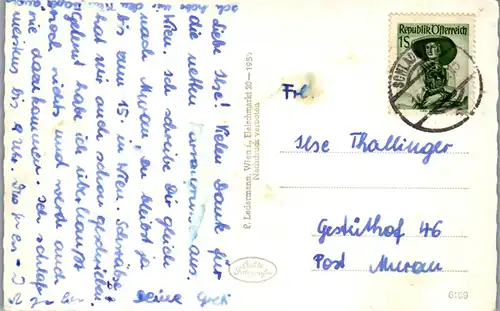 Liebe Ilse! Vielen Dank für
die netten aus
Wien. Ich schreibe Dir gleich
nach Murau, Du bleibst ja
bis zum 15. in Wien. Schwäbe
hat mir auch schon geschrieben.
Gelernt habe ich überhaupt
noch nichts und werde auch
nie dazu kommen. Ich schlafe
meistens bis 9 Uhr.
Deine Greti
ich habe
P. Ledermann, Wien I., Fleischmarkt 20 - 195
Nachdruck verboten
Republik Österreich
1S
Frl.
Ilse Thallinger
Gestüthof 46
Post Murau